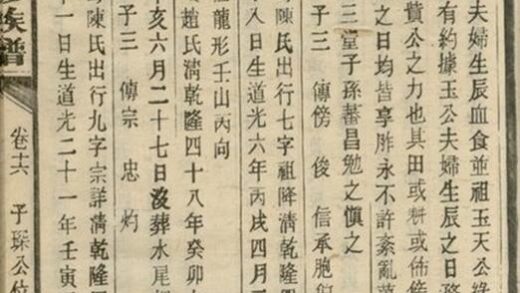 夫婦生辰血食並祖玉天公
有約據玉公夫婦生辰之日務
公之力也其田或耕或佈
之日均皆享胙永不許紊亂
三堂子孫蕃昌勉之慎之
子三 傳傍 俊 信承胞
陳氏出行七字祖降清乾隆
八日生道光六年丙戌四月
龍形壬山丙向
趙氏清乾隆四十八年癸卯
亥六月二十七日沒葬水尾
子三 傳宗 忠 灼
陳氏出行九字宗詳清乾隆
一日生道光二十一年壬寅
族譜 卷十六 子琛公位